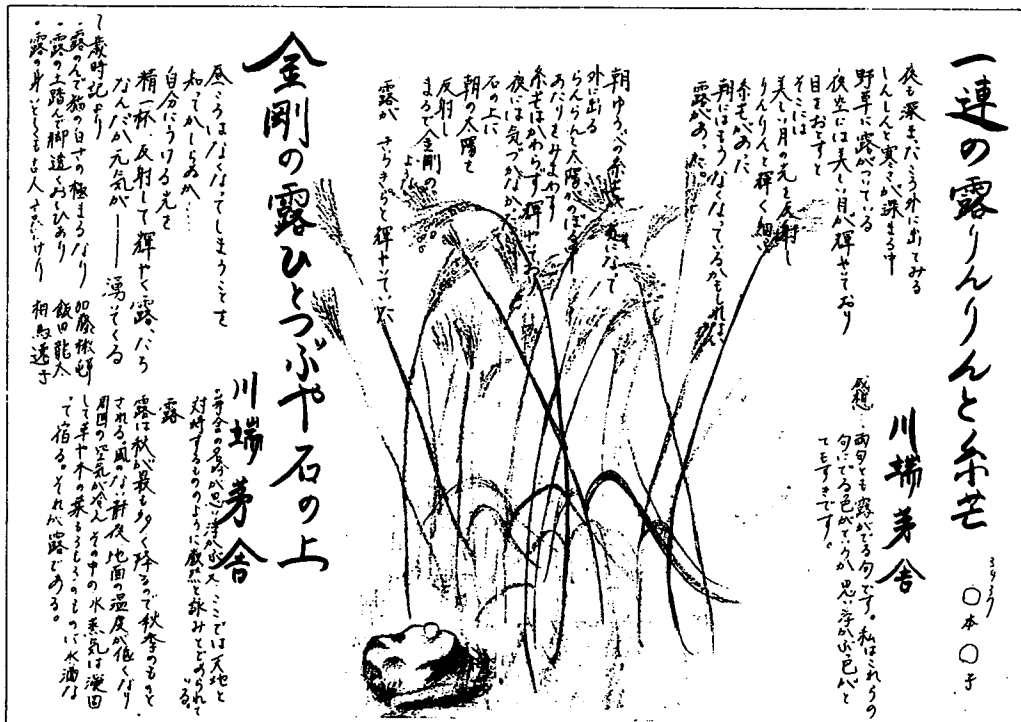 一連の露りんりんと糸芒
川端茅舎
3437
○本○子
夜も深まったころ外に出てみる
しんしんと寒さが深まる中
野草に露がついている
夜空には美しい月が輝やいており
目をおとすと
そこには
美しい月の光を反射し
りんりんと輝く細い
糸芒があった
朝にはもうなくなっているかもしれない
露があった。
感想
両句とも露がでる句です。私はこれらの
句にでる色がでてくるか
思い浮かぶ色がと
てもすきです。
朝ゆうべの糸芒が気になって
外に出る
らんらんと太陽がのぼる中
あたりをみまわす
糸芒はかわらず輝やいており
夜には気づかなかった
石の上に
朝の太陽を
反射し
まるで金剛の
ような
露が
きらきらと輝やいていた
金剛の露ひとつぶや石の上
川端茅舎
昼ころはなくなってしまうことを
知ってかしらぬか…
自分にうける光を
精一杯、反射して輝やく露、だろ
なんだか元気が――湧いてくる
歳時記より
・露のんで猫の白さの極まるなり
加藤楸邨
・露の土踏んで脚透くおもひあり
飯田龍太
・露の身いとしも古人
相馬遷子
対峙するもののように厳然と詠みとどめられて
いる。
露
露は秋が最も多く降るので秋季のものと
される。風のない静夜、地面の温度が低くなり
周囲の空気が冷え、その中の水蒸気は凝固
して草や木の葉そのもろもろのものに水滴な
って宿る。それが露である。